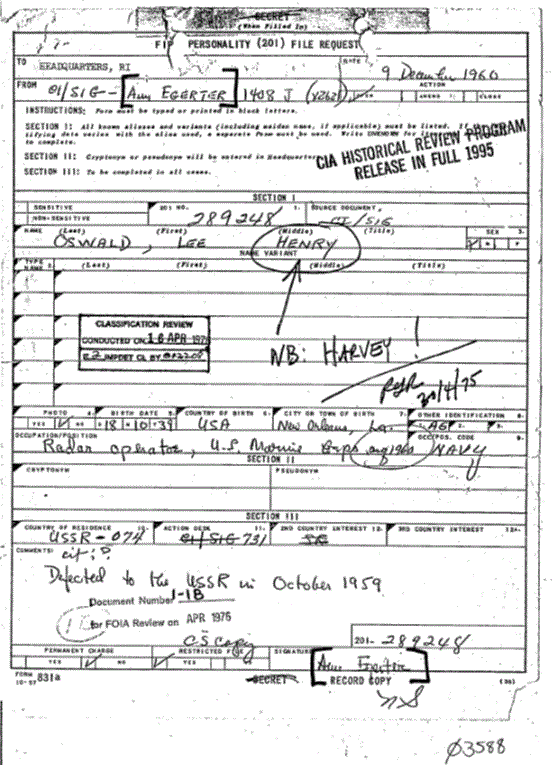 SECRET
(When Filled In)
PERSONALITY (201) FILE REQUEST
TO
HEADQUARTERS, RI
DATE
9 December 1960
FROM
CI/SIG - [Ann EGERTER] 1408 J
ACTION
OPEN AMEND CLOSE
INSTRUCTIONS: Form must be typed or printed in black letters.
SECTION I: All known aliases and variants (including maiden name, if applicable) must be listed. If
tifying data varies with the alias used, a separate form must be used. Write UNKNOWN for
to complete.
SECTION II: Cryptonym or pseudonym will be entered in Headquarters
SECTION III: To be completed in all cases.
CIA HISTORICAL REVIEW PROGRAM
RELEASE IN FULL 1995
SECTION I
SENSITIVE
NON-SENSITIVE
201 NO. 1.
289248
SOURCE DOCUMENT
CI/SIG
NAME (Last) (First) (Middle) (Title)
SEX 3.
OSWALD, LEE HENRY
NAME VARIANT
TYPE NAME 2. (Last) (First) (Middle) (Title)
CLASSIFICATION REVIEW
CONDUCTED ON 16 APR 1976
E 2 IMPDET CL BY
NB: HARVEY!
20/4/75
PHOTO 4.
YES NO
BIRTH DATE 5.
18 · 10 · 39
COUNTRY OF BIRTH 6.
USA
CITY OR TOWN OF BIRTH 7.
New Orleans, La.
OTHER IDENTIFICATION 8.
AG
OCCUPATION/POSITION
Radar operator, U.S. Marine Corps aug 1960
OCC/POS. CODE 9.
NAVY
SECTION II
CRYPTONYM
PSEUDONYM
SECTION III
COUNTRY OF RESIDENCE 10.
USSR - 074
ACTION DESK 11.
CI/SIG 731
2ND COUNTRY INTEREST 12.
3RD COUNTRY INTEREST 12A.
COMMENTS:
cit: ?
Defected to the USSR in October 1959
Document Number 1-1B
for FOIA Review on APR 1976
CS Copy
201- 289248
PERMANENT CHARGE
YES NO
RESTRICTED FILE
YES NO
SIGNATURE
[Ann Egerter]
FORM 10-57 831a
SECRET
RECORD COPY
03588